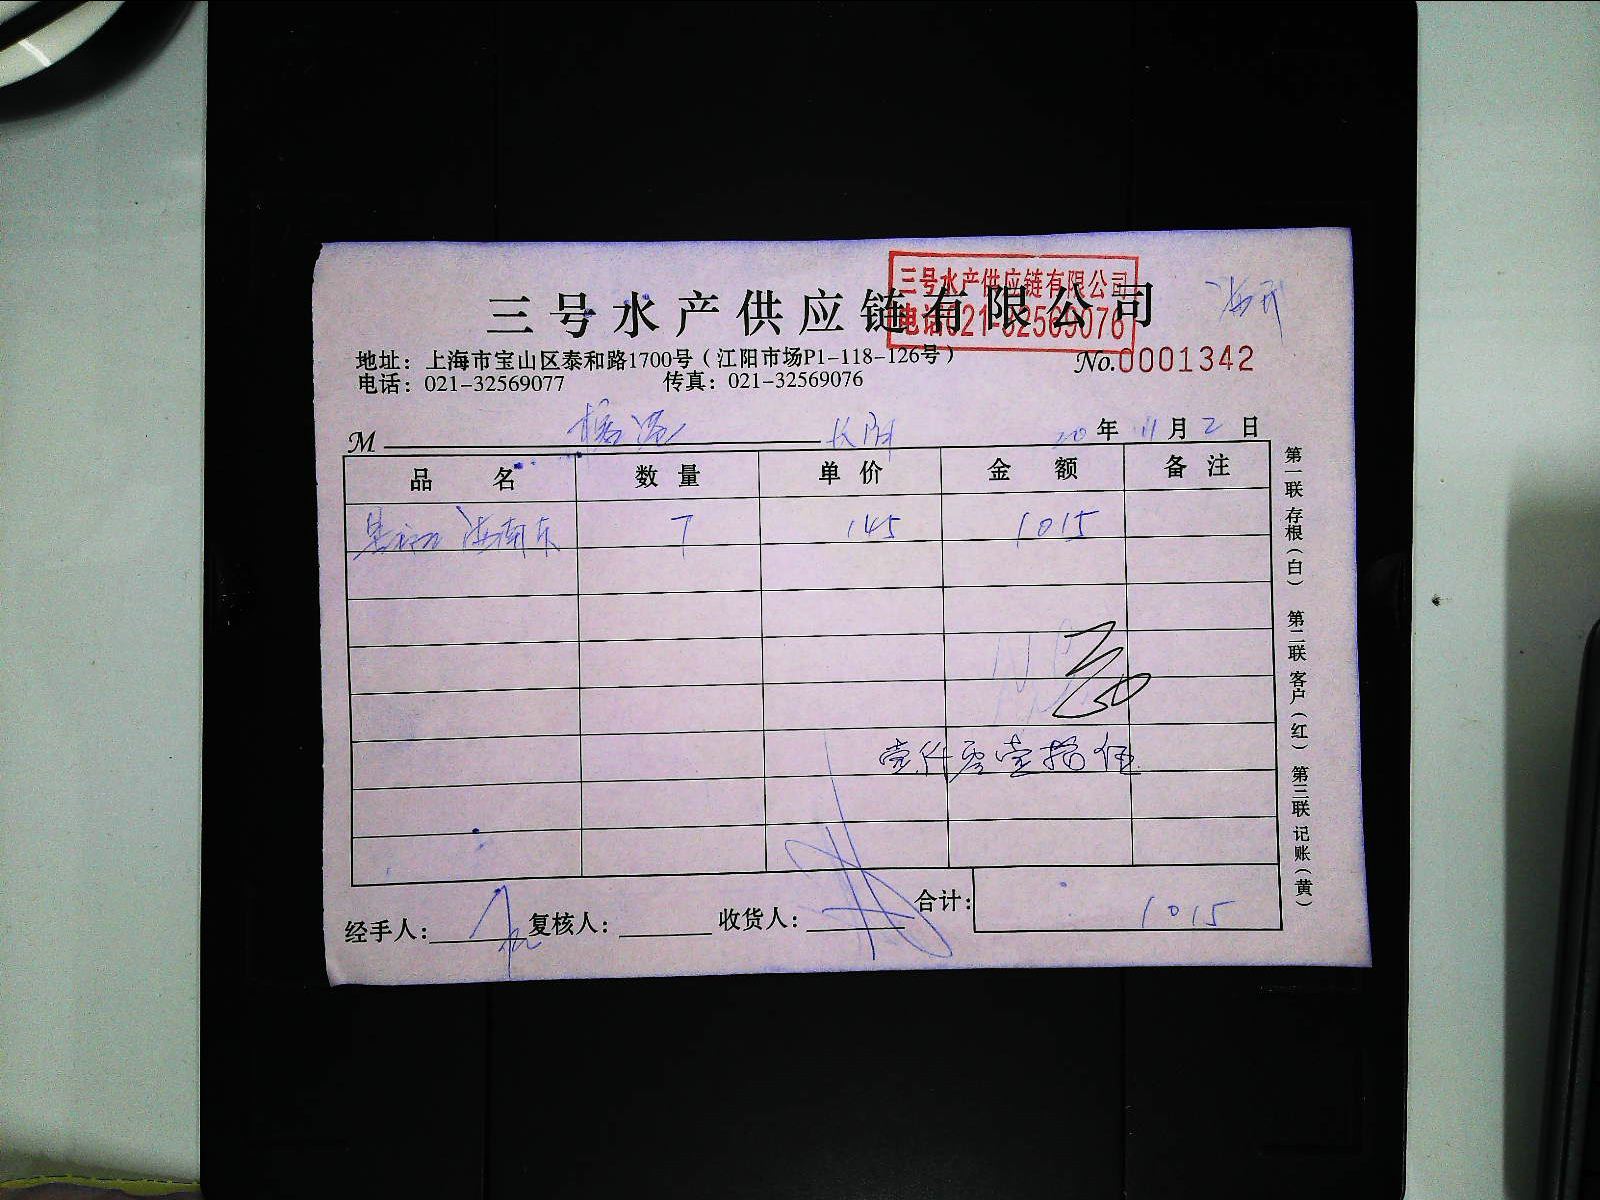 三号水产供应链有限公司
三号水产供应链有限公司
电话021-32569076
地址：上海市宝山区泰和路1700号（江阳市场P1-118-126号）
No.0001342
电话：021-32569077 传真：021-32569076
M 长阳 20年11月2日
品名 数量 单价 金额 备注
海南东 7 145 1015
壹仟零壹拾伍
经手人： 复核人： 收货人： 合计：1015
第一联 存根（白） 第二联 客户（红） 第三联 记账（黄）